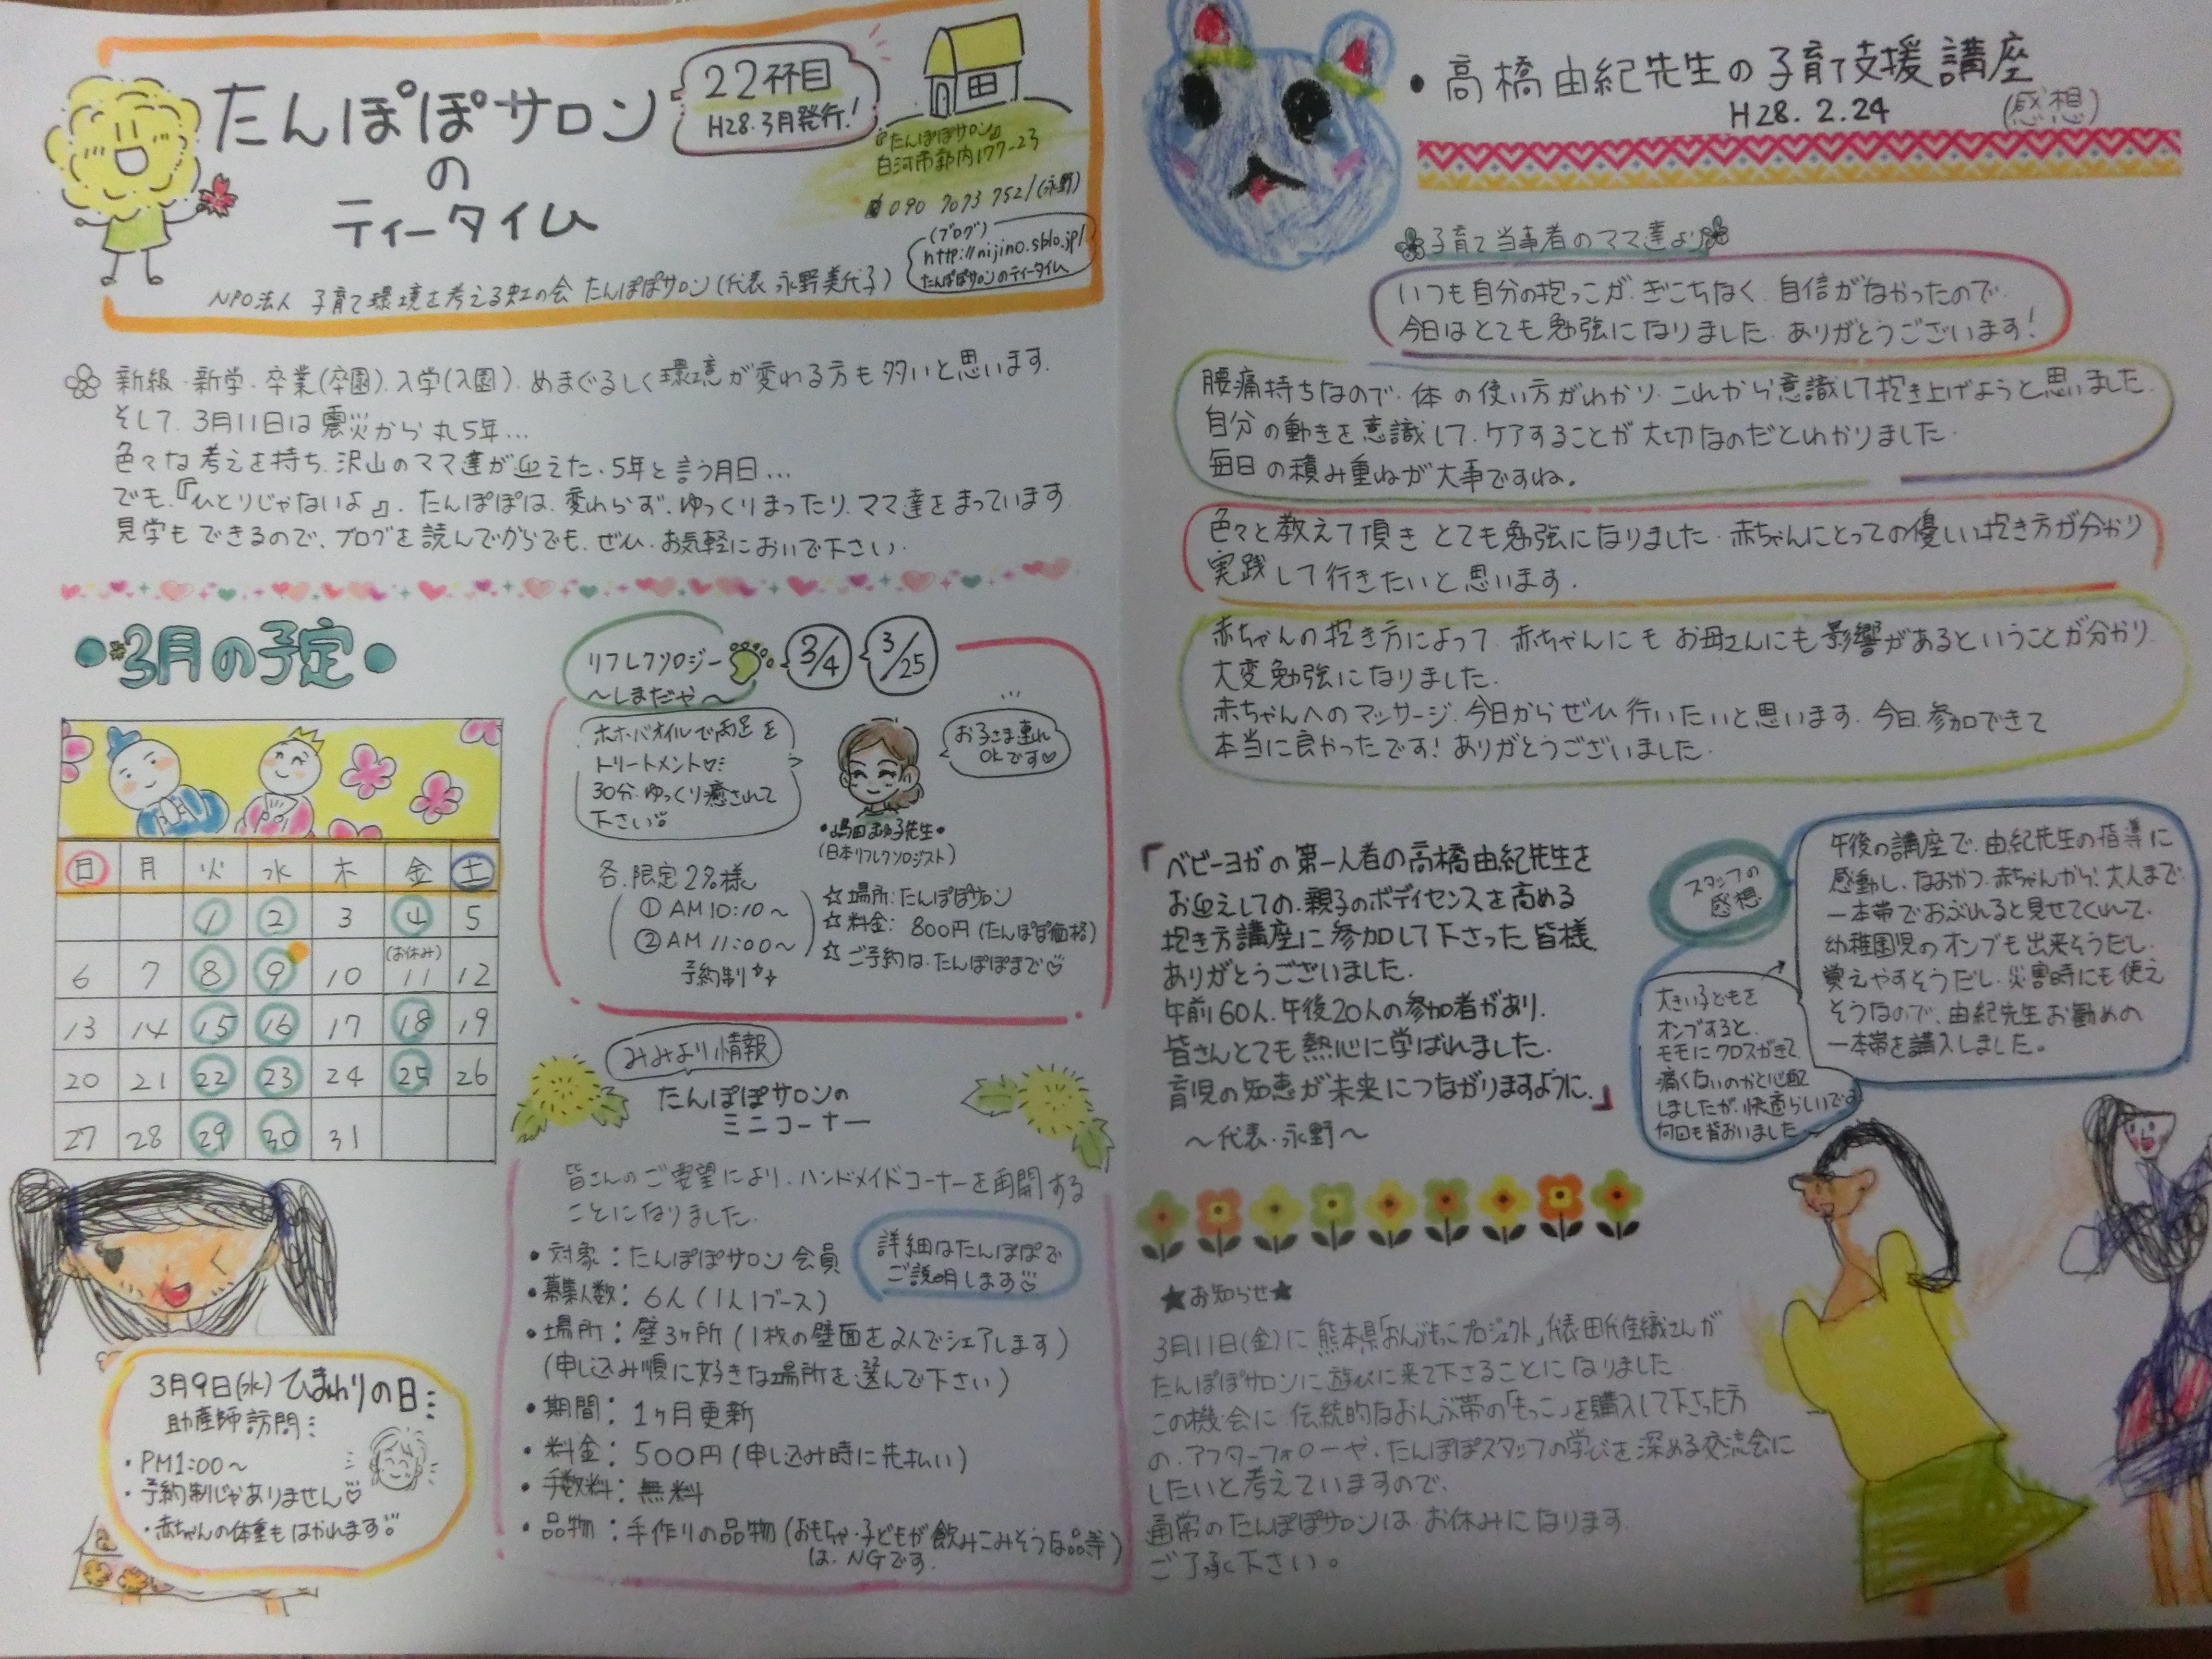 たんぽぽサロン
の
ティータイム
22杯目
H28.3月発行!
『たんぽぽサロン』
白河市郭内177-23
090 7073 7521(永野)
(ブログ)
http://nijino.sblo.jp/
たんぽぽサロンのティータイム
NPO法人 子育て環境を考える虹の会 たんぽぽサロン(代表 永野美代子)
新級・新学・卒業(卒園)、入学(入園)、めまぐるしく環境が変わる方も多いと思います。
そして、3月11日は震災から丸5年...
色々な考えを持ち、沢山のママ達が迎えた、5年と言う月日...
でも、『ひとりじゃないよ』、たんぽぽは、変わらず、ゆっくりまったり、ママ達をまっています
見学もできるので、ブログを読んでからでも、ぜひ、お気軽においで下さい。
3月の予定
日 月 火 水 木 金 土
1 2 3 4 5
(お休み)
6 7 8 9 10 11 12
13 14 15 16 17 18 19
20 21 22 23 24 25 26
27 28 29 30 31
3月9日(水)ひまわりの日
助産師訪問
・PM1:00〜
・予約制じゃありません♡
・赤ちゃんの体重もはかれます
リフレクソロジー
〜しまだや〜
3/4
3/25
ホホバオイルで両足を
トリートメント
30分ゆっくり癒されて
下さい
お子さま連れ
OKです♡
(日本リフレクソロジスト)
各、限定2名様
① AM10:10〜
② AM11:00〜
予約制
☆場所:たんぽぽサロン
☆料金: 800円(たんぽぽ価格)
☆ご予約は、たんぽぽまで♡
みみより情報
たんぽぽサロンの
ミニコーナー
皆さんのご要望により、ハンドメイドコーナーを再開する
ことになりました。
・対象:たんぽぽサロン会員
詳細はたんぽぽで
ご説明します
・募集人数:6人(1人1ブース)
・場所:壁3ヶ所(1枚の壁面を2人でシェアします)
(申し込み順に好きな場所を選んで下さい)
・期間:1ヶ月更新
・料金:500円(申し込み時に先払い)
・手数料:無料
・品物:手作りの品物(おもちゃ・子どもが飲みこみそうな品等)
は、NGです。
・高橋由紀先生の子育て支援講座
H28.2.24
(感想)
子育て当事者のママ達より
いつも自分の抱っこが、ぎこちなく、自信がなかったので、
今日はとても勉強になりました。ありがとうございます!
腰痛持ちなので、体の使い方がわかり、これから意識して抱き上げようと思いました。
自分の動きを意識して、ケアすることが大切なのだとわかりました。
毎日の積み重ねが大事ですね。
色々と教えて頂きとても勉強になりました。赤ちゃんにとっての優しい抱き方が分かり
実践して行きたいと思います。
赤ちゃんの抱き方によって、赤ちゃんにもお母さんにも影響があるということが分かり
大変勉強になりました。
赤ちゃんへのマッサージ、今日からぜひ行いたいと思います。今日、参加できて
本当に良かったです!ありがとうございました。
「ベビーヨガの第一人者の高橋由紀先生を
お迎えしての、親子のボディセンスを高める
抱き方講座に参加して下さった皆様、
ありがとうございました。
午前60人、午後20人の参加者があり、
皆さんとても熱心に学ばれました。
育児の知恵が未来につながりますように。」
〜代表・永野〜
スタッフの
感想
午後の講座で、由紀先生の指導に
感動し、なおかつ、赤ちゃんから、大人まで、
一本帯でおぶれると見せてくれて、
幼稚園児のオンブも出来そうだし、
覚えやすそうだし、災害時にも使え
そうなので、由紀先生お勧めの
一本帯を購入しました。
大きい子どもを
オンブすると、
モモにクロスがきて、
痛くないのかと心配
しましたが、快適らしいです
何回も背おいました
★お知らせ★
3月11日(金)に熊本県「おんぶもっこプロジェクト」代表田氏佳織さんが
たんぽぽサロンに遊びに来て下さることになりました
この機会に伝統的なおんぶ帯の「もっこ」を購入して下さった方
の、アフターフォローや、たんぽぽスタッフの学びを深める交流会に
したいと考えていますので、
通常のたんぽぽサロンは、お休みになります
ご了承下さい。